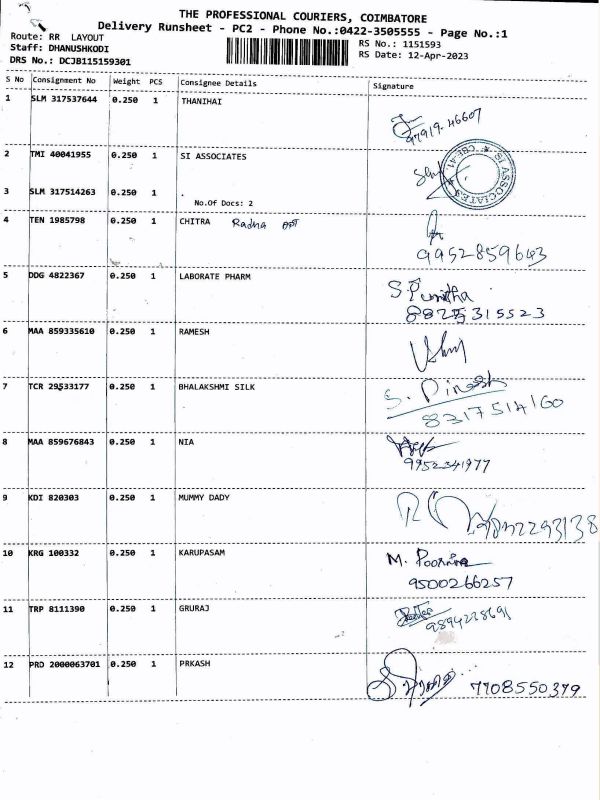 THE PROFESSIONAL COURIERS, COIMBATORE
Delivery Runsheet - PC2 - Phone No.:0422-3505555 - Page No.:1
Route: RR LAYOUT
RS No.: 1151593
Staff: DHANUSHKODI
RS Date: 12-Apr-2023
DRS No.: DCJB115159301
S No Consignment No Weight PCS Consignee Details Signature
1 SLM 317537644 0.250 1 THANIHAI
97919-46607
2 TMI 40041955 0.250 1 SI ASSOCIATES
SI ASSOCIATES CBE-41
3 SLM 317514263 0.250 1 .
No.Of Docs: 2
4 TEN 1985798 0.250 1 CHITRA Radha
9952859643
5 DDG 4822367 0.250 1 LABORATE PHARM
S. Punitha
88275315523
6 MAA 859335610 0.250 1 RAMESH
7 TCR 29533177 0.250 1 BHALAKSHMI SILK
S. Dinesh
8317514160
8 MAA 859676843 0.250 1 NIA
9952341977
9 KDI 820303 0.250 1 MUMMY DADY
10 KRG 100332 0.250 1 KARUPASAM
M. Poornima
9500266257
11 TRP 8111390 0.250 1 GRURAJ
9894238691
12 PRD 2000063701 0.250 1 PRKASH
7708550379